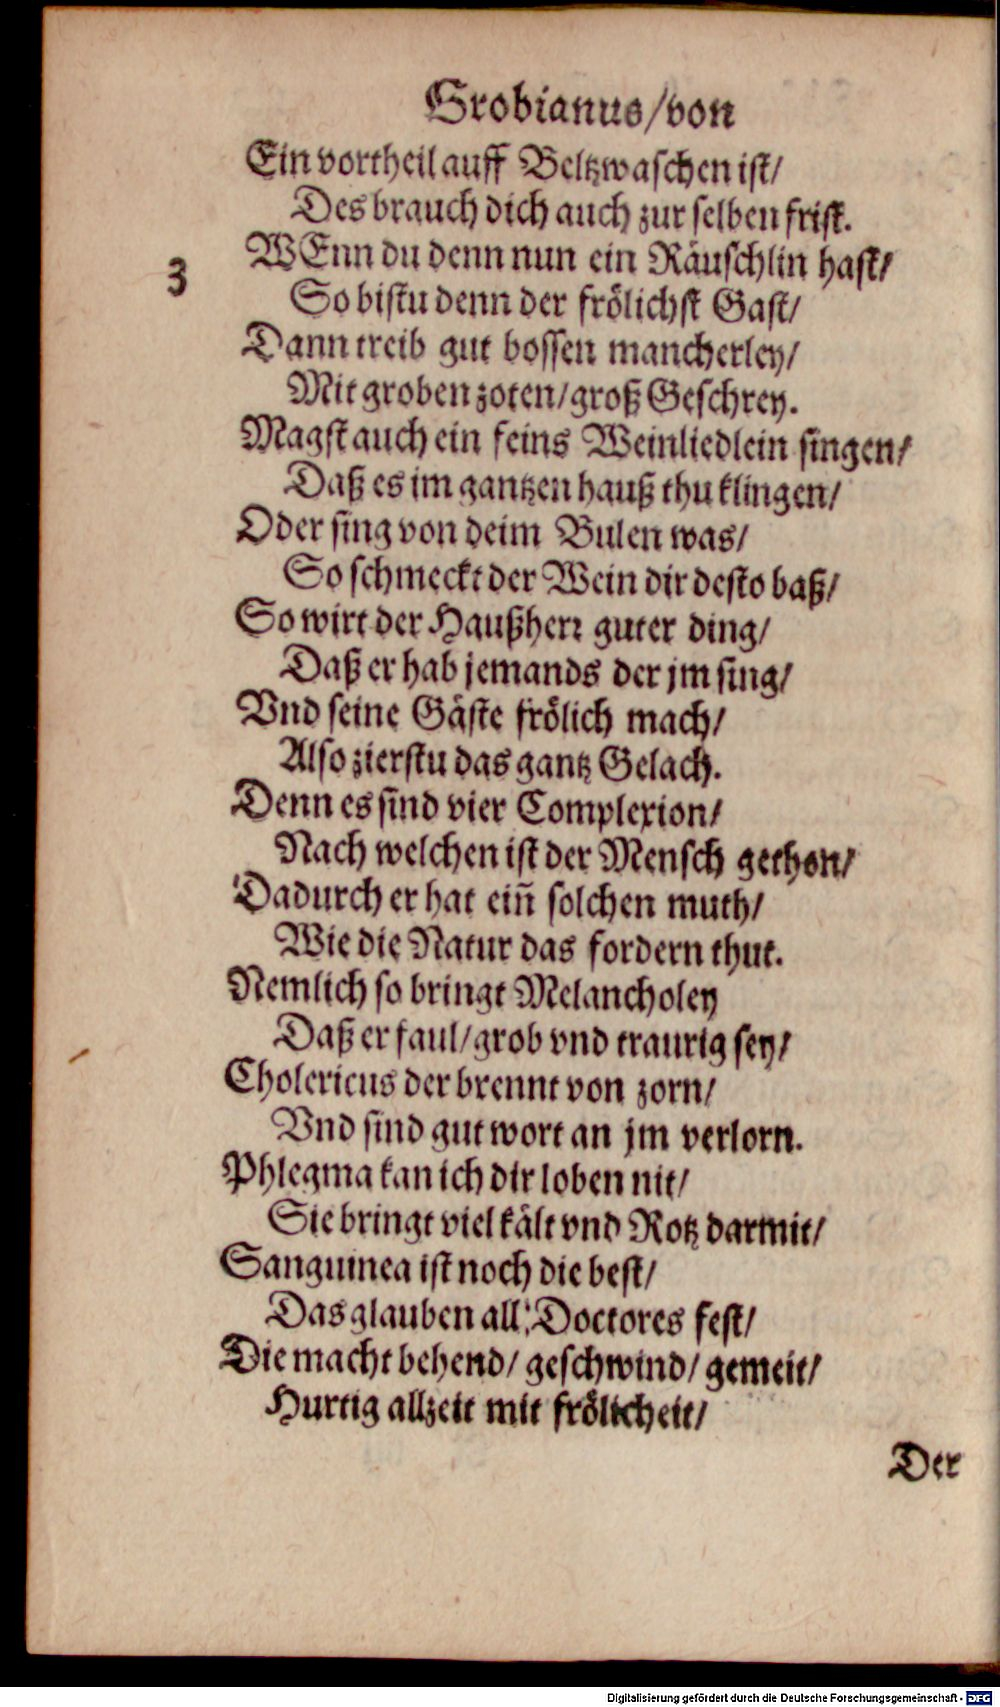 Grobianus/von
Ein vortheil auff Beltzwaschen ist/
Des brauch dich auch zur selben frist.
3 WEnn du denn nun ein Räuschlin hast/
So bistu denn der frölichst Gast/
Dann treib gut bossen mancherley/
Mit groben zoten/groß Geschrey.
Magst auch ein feins Weinliedlein singen/
Daß es im gantzen hauß thu klingen/
Oder sing von deim Bulen was/
So schmeckt der Wein dir desto baß/
So wirt der Haußherr guter ding/
Daß er hab jemands der jm sing/
Vnd seine Gäste frölich mach/
Also zierstu das gantz Gelach.
Denn es sind vier Complexion/
Nach welchen ist der Mensch gethon/
Dadurch er hat ein̄ solchen muth/
Wie die Natur das fordern thut.
Nemlich so bringt Melancholey
Daß er faul/grob vnd traurig sey/
Cholericus der brennt von zorn/
Vnd sind gut wort an jm verlorn.
Phlegma kan ich dir loben nit/
Sie bringt viel kält vnd Rotz darmit/
Sanguinea ist noch die best/
Das glauben all: Doctores fest/
Die macht behend/ geschwind/ gemeit/
Hurtig allzeit mit frölicheit/
Der
Digitalisierung gefördert durch die Deutsche Forschungsgemeinschaft - DFG